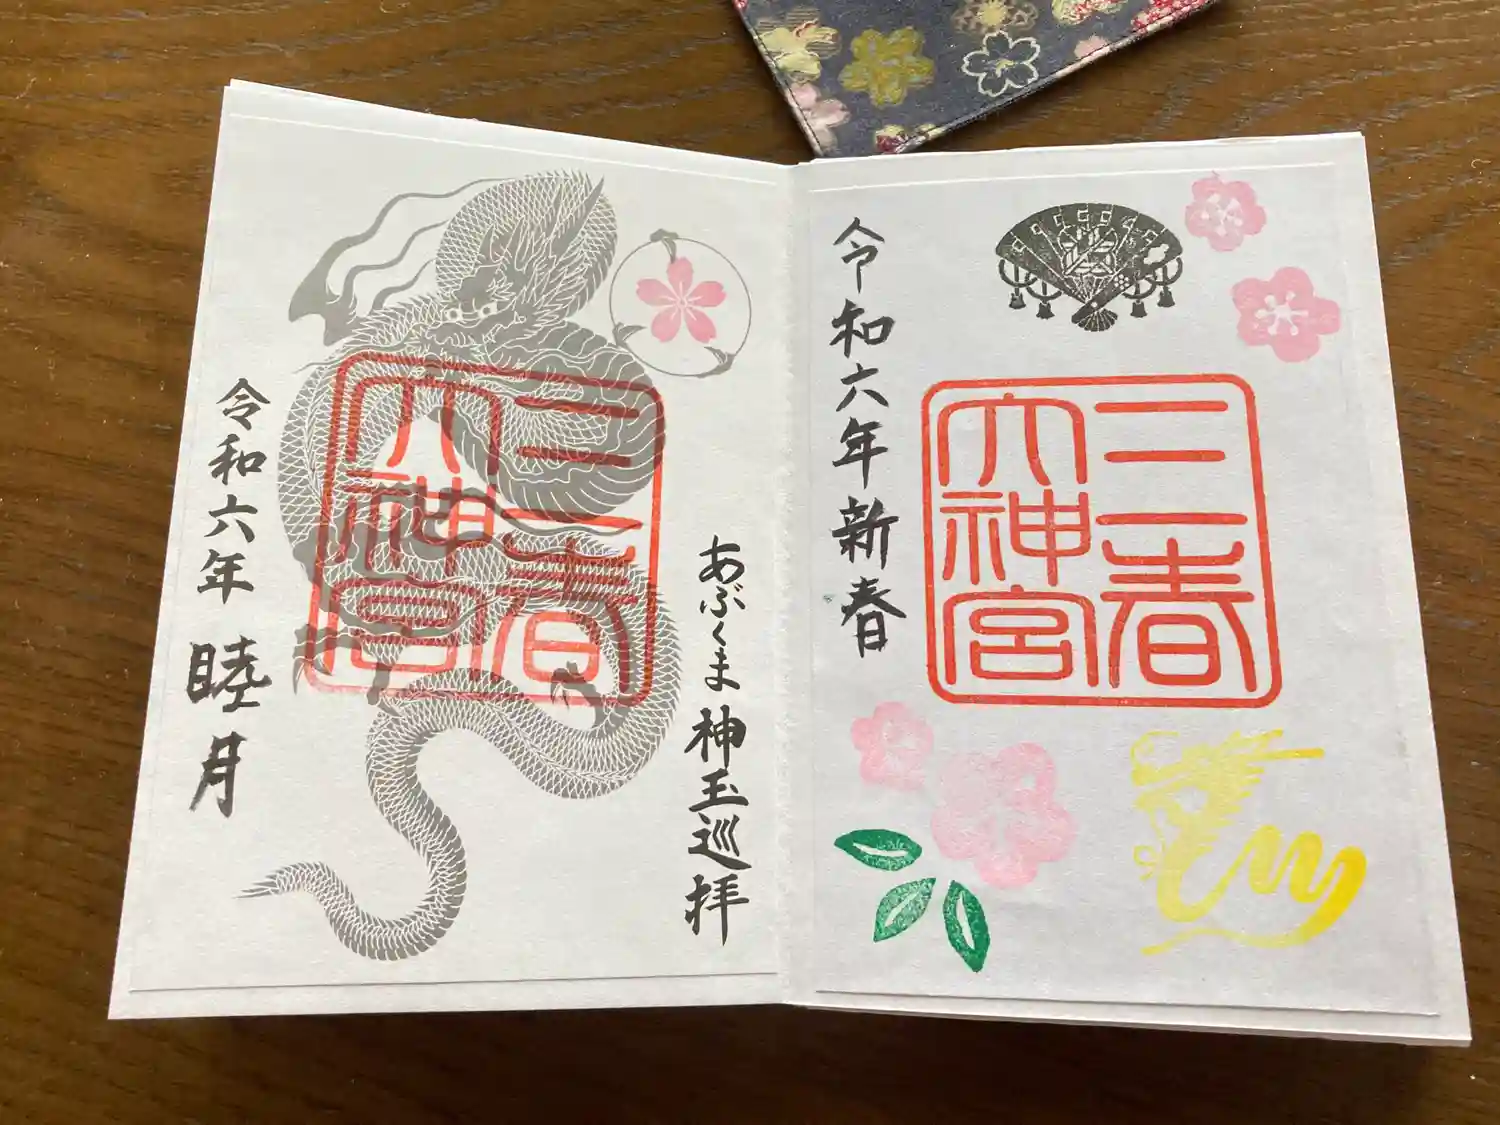 三春
大神宮
令和六年新春
あぶくま神玉巡拝
三春
大神宮
令和六年 睦月